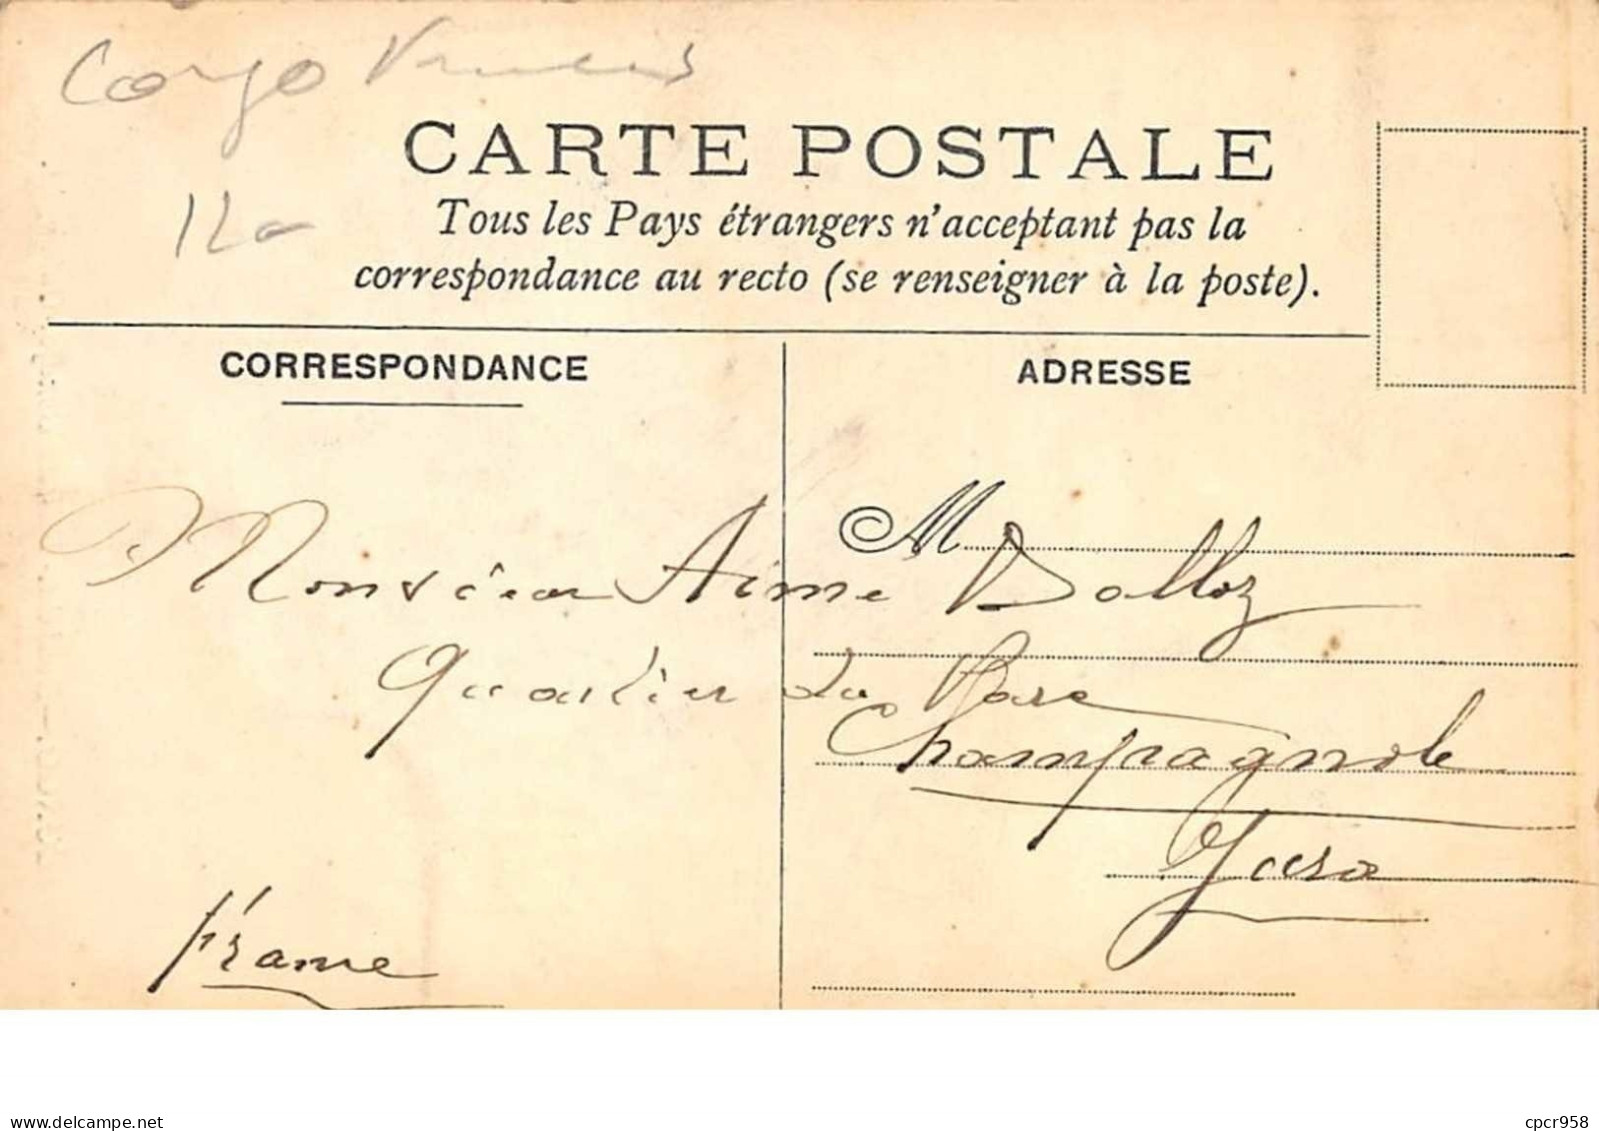 Congo Francais
12-
CARTE POSTALE
Tous les Pays étrangers n'acceptant pas la
correspondance au recto (se renseigner à la poste).
CORRESPONDANCE
ADRESSE
M
Monsieur Aimé Dalloz
Quartier du
Champagnole
Jura
France
delcampe.net
cpcr958